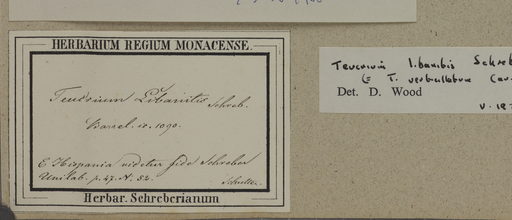 HERBARIUM REGIUM MONACENSE.
Teucrium Libanitis Schreb.
Barrel. ic. 1090.
E Hispania videtur fide Schreber
Unilab. p. 47. N. 52.
Schultes.
Herbar. Schreberianum
Teucrium libanitis Schreb
(= T. verticillatum Cav.
Det. D. Wood